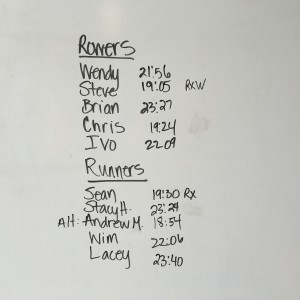 Rowers
Wendy 21:56
Steve 19:05 RXW
Brian 23:27
Chris 19:24
Ivo 22:09
Runners
Sean 19:30 Rx
Stacy H. 23:29
Alt: Andrew M. 18:54
Wim 22:06
Lacey 23:40